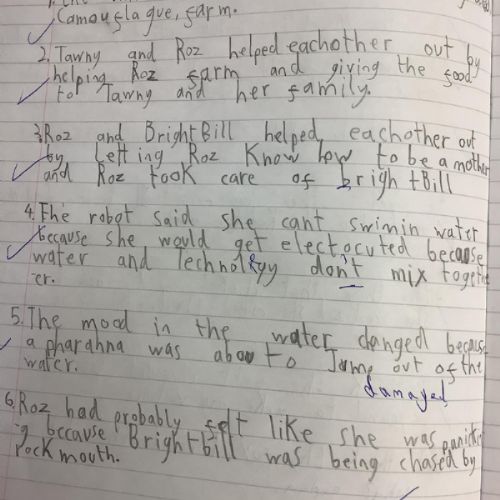 Camouflague, farm.
2. Tawny and Roz helped eachother out by
helping Roz farm and giving the food
to Tawny and her family.
3. Roz and BrightBill helped eachother out
by letting Roz Know how to be a mother
and Roz took care of brightBill
4. The robot said she cant swimin water
because she would get electocuted because
water and Technology don't mix togeth
er.
5. The mood in the water changed because
a pharahna was about to Jump out of the
water.
damaged
6. Roz had probably felt like she was panick
g because Brightbill was being chased by
rockmouth.